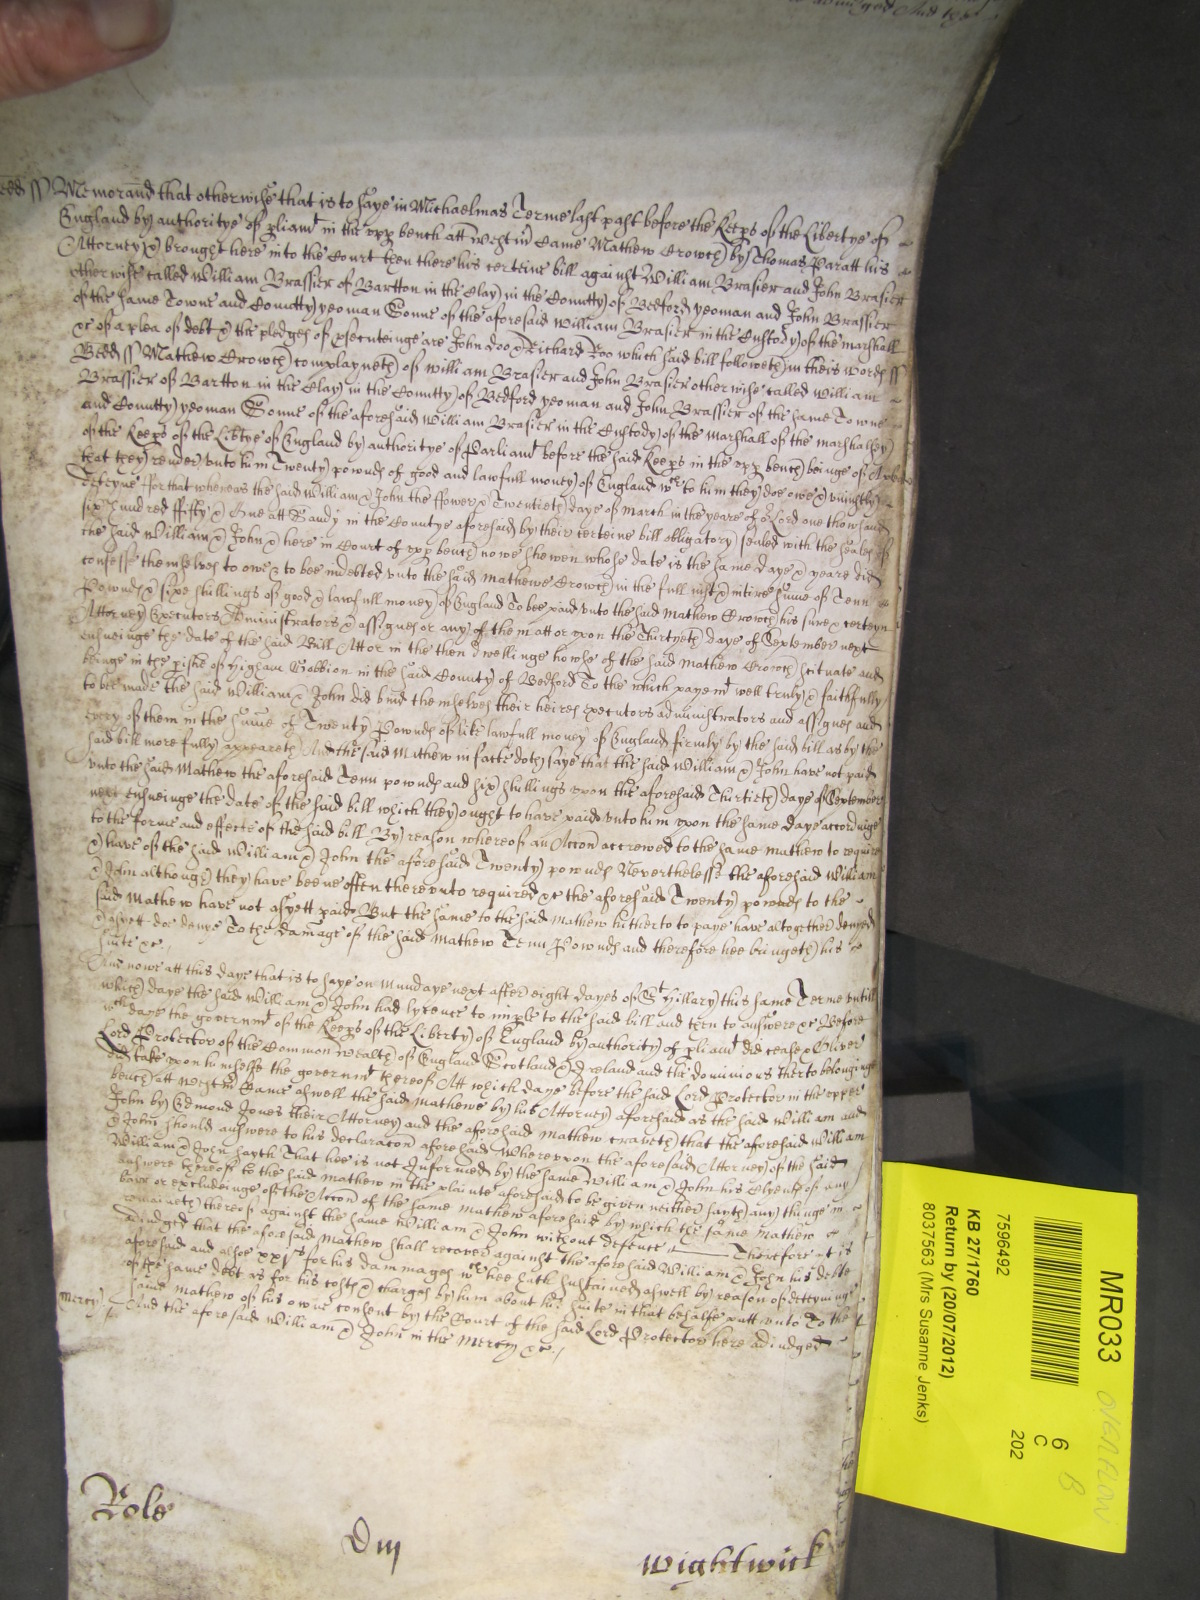 Bedd ss Memorand that otherwise that is to saye in Michaelmas Terme last past before the Keeps of the Libertye of
England by authoritye of pliamt in the upp bench att Westm Came Mathew Crowch by Thomas Paratt his
Attorney & brought here into the Court then there his certeine bill against William Brasier and John Brasier
otherwise called William Brassier of Bartton in the Clay in the Countty of Bedford yeoman and John Brassier
of the same Towne and Countty yeoman Sonne of the aforesaid William Brasier in the Custody of the marshall
&c of a plea of debt & the pledges of psecuteinge are John Doo & Richard Roo which said bill followeth in theis words ss
Bedd ss Mathew Crowch complayneth of William Brasier and John Brasier otherwise called William
Brassier of Bartton in the Clay in the Countty of Bedford yeoman and John Brassier of the same Towne
and Countty yeoman Sonne of the aforesaid William Brasier in the Custody of the Marshall of the marshallsey
of the Keeps of the Libtye of England by authoritye of Parliamt before the said Keeps in the upp bench beinge of A
that they render unto him Twenty pownds of good and lawfull money of England wch to him they doe owe & uniustly
deteyne for that whereas the said William & John the ffower & Twentieth daye of March in the yeare of or Lord one thowsand
six hundred ffifty & One att Sandy in the Countye aforesaid by their certeine bill obligatory sealed with the seales of
the said William & John & here in Court of upp bench nowe shewen whose date is the same daye & yeare did
confesse themselves to owe & to bee indebted unto the said Mathewe Crowch in the full iust & intire sume of Tenn
Pownds & sixe shillings of good & lawfull money of England To bee paid unto the said Mathew Crowch his sure & certeyn
Attorney Executors Administrators & assignes or any of them att or upon the Thirtyeth daye of September next
ensueinge the date of the said Bill Att or in the then dwellinge howse of the said Mathew Crowch scituate and
beinge in the pishe of Higham Gobbion in the said County of Bedford To the which payemt well truly & faithfully
to bee made the said William & John did bind themselves their heires executors administrators and assignes and
every of them in the sume of Twenty Pownds of like lawfull money of England firmly by the said bill as by the
said bill more fully appeareth And the said Mathew in facte doth saye that the said William & John have not paid
unto the said Mathew the aforesaid Tenn pownds and six shillings upon the aforesaid Thirtieth daye of September
next ensueinge the date of the said bill which they ought to have paid unto him upon the same daye accordinge
to the forme and effecte of the said bill By reason whereof an Accon accrewed to the same Mathew to require
& have of the said William & John the aforesaid Twenty pownds Neverthelesse the aforesaid William
& John although they have beene often thereunto required &c the aforesaid Twenty pownds to the
said Mathew have not as yett paid But the same to the said Mathew hitherto to paye have altogether denyed
& as yett doe denye To the damage of the said Mathew Tenn Pownds and therefore hee bringeth his
suite &c
And nowe att this daye that is to saye on Mundaye next after eight dayes of St Hillary this same Terme untill
which daye the said William & John had lycence to imple to the said bill and then to answere &c Before
wch daye the governmt of the Keeps of the Liberty of England by authority of pliamt did cease & Oliver
Lord Protector of the Common Wealth of England Scotland & Ireland and the dominions therto belonginge
did take upon himselfe the governmt thereof Att which daye before the said Lord Protector in the upper
bench att Westm Came aswell the said Mathewe by his Attorney aforesaid as the said William and
John by Edmond Jones their Attorney and the aforesaid Mathew craveth that the aforesaid William
& John should answere to his declaracon aforesaid Whereupon the aforesaid Attorney of the said
William & John sayth That hee is not Informed by the same William & John his Clyents of any
answere thereof to the said Mathew in the plainte aforesaid to be given neither sayth any thinge in
barr or excludeinge of the Accon of the same Mathew aforesaid by which the same Mathew
remaineth thereof against the same William & John without deffence Therefore it is
adiudged that the aforesaid Mathew shall recover against the aforesaid William & John his debte
aforesaid and alsoe xxjs for his dammages wch hee hath susteined aswell by reason of deteyninge
of the same debt as for his costs & charges by him about his suite in that behalfe putt unto To the
said Mathew of his owne consent by the Court of the said Lord Protector here adiudged
mercy And the aforesaid William & John in the Mercy &c
Role
Diij
Wightwick
MR033
OVERFLOW
6
C
B
202
7596492
KB 27/1760
Return by (20/07/2012)
8037563 (Mrs Susanne Jenks)